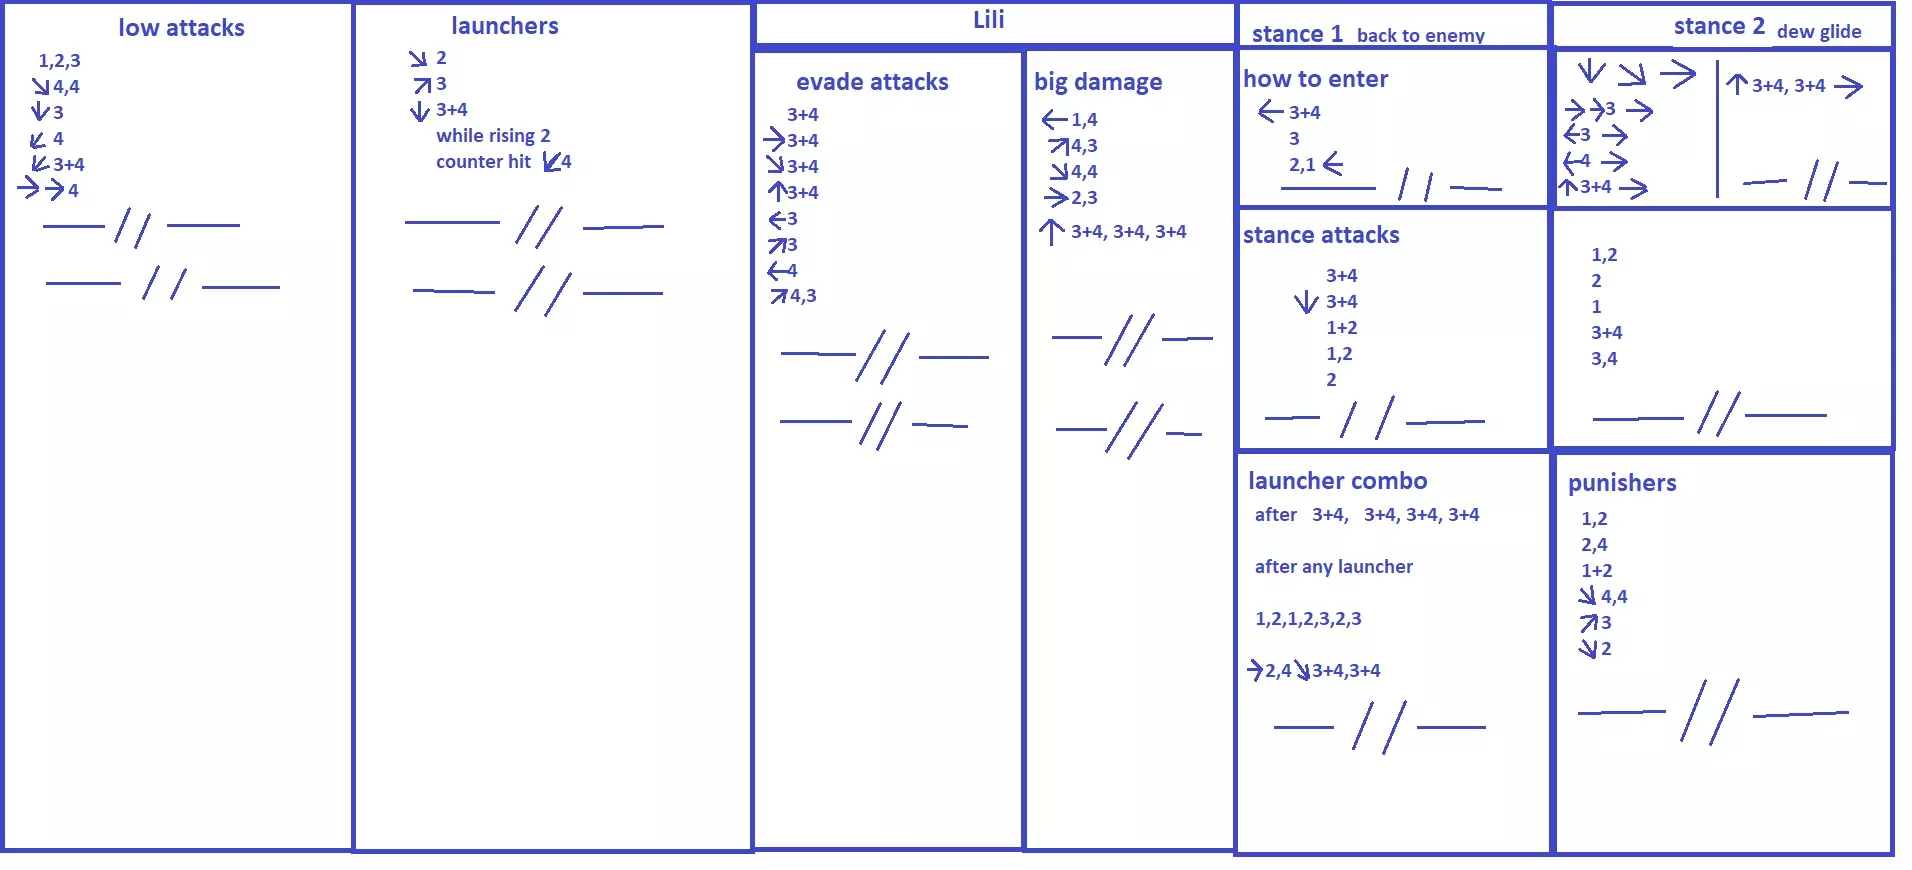 low attacks
1,2,3
↘4,4
↓3
↙4
↙3+4
→→4
launchers
↘2
↗3
↓3+4
while rising 2
counter hit ↙4
Lili
evade attacks
3+4
→3+4
↘3+4
↑3+4
←3
↗3
←4
↗4,3
big damage
←1,4
↗4,3
↘4,4
→2,3
↑3+4, 3+4, 3+4
stance 1 back to enemy
how to enter
←3+4
3
2,1←
stance attacks
3+4
↓3+4
1+2
1,2
2
launcher combo
after 3+4, 3+4, 3+4, 3+4
after any launcher
1,2,1,2,3,2,3
→2,4↘3+4,3+4
stance 2 dew glide
↓↘→
→→3→
←3→
←4→
↑3+4→
↑3+4, 3+4→
1,2
2
1
3+4
3,4
punishers
1,2
2,4
1+2
↘4,4
↗3
↘2